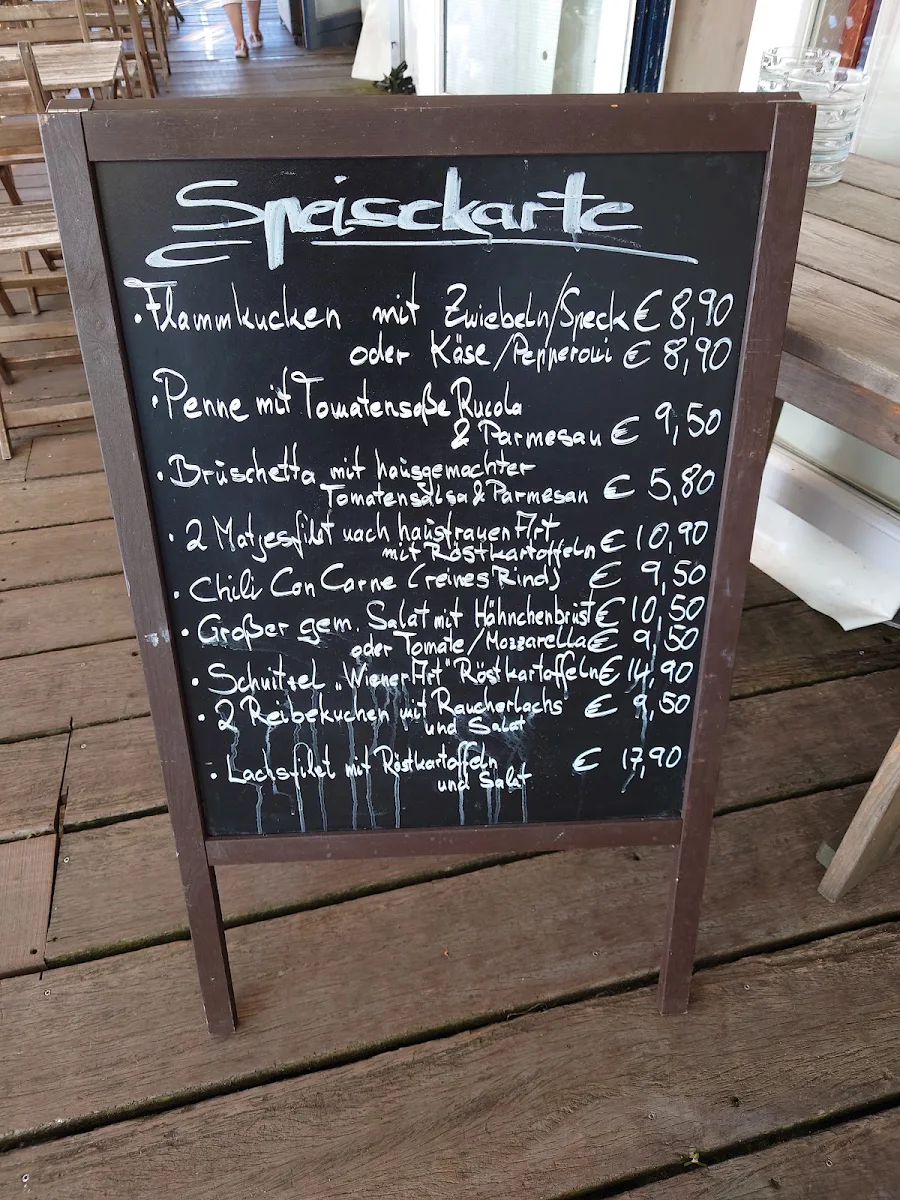 Speisekarte
• Flammkucken mit Zwiebeln/Speck € 8,90
oder Käse/Pepperoni € 8,90
• Penne mit Tomatensoße Rucola
& Parmesan € 9,50
• Brüschetta mit haüsgemachter
Tomatensalsa & Parmesan € 5,80
• 2 Matjesfilet nach haüsfrauen Art
mit Röstkartoffeln € 10,90
• Chili Con Carne (reines Rind) € 9,50
• Großer gem. Salat mit Hähnchenbrüst € 10,50
oder Tomate/Mozzarella € 9,50
• Schnitzel „Wiener Art" Röstkartoffeln € 14,90
• 2 Reibekuchen mit Raucherlachs € 9,50
und Salat
• Lachsfilet mit Röstkartoffeln € 17,90
und Salat